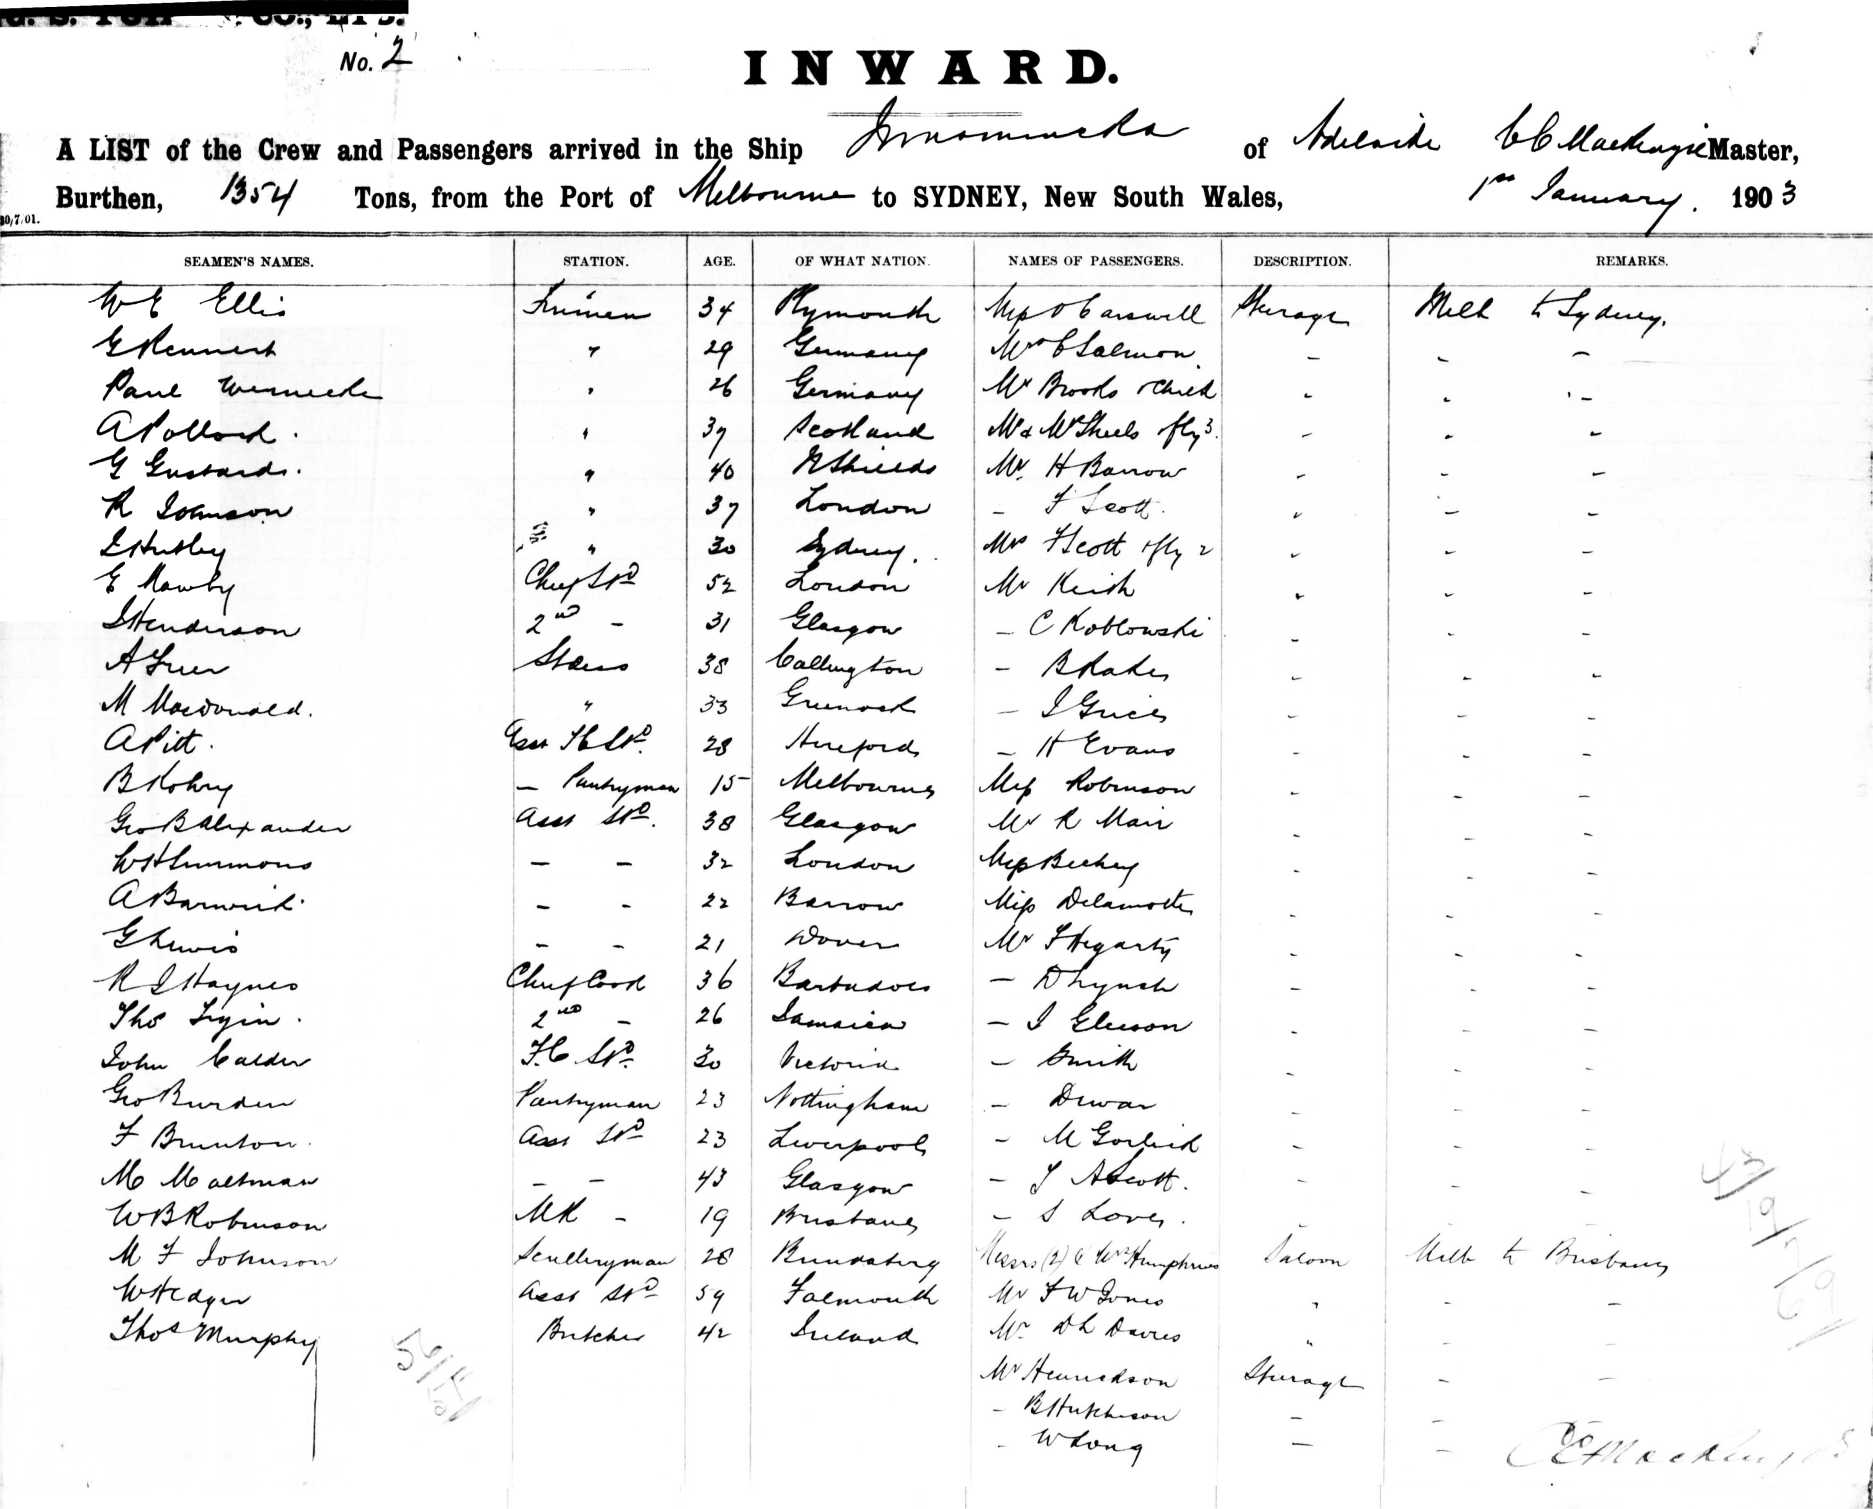 No. 2
INWARD.
A LIST of the Crew and Passengers arrived in the Ship Innamincka of Adelaide C C MacKenzie Master,
Burthen, 1354 Tons, from the Port of Melbourne to SYDNEY, New South Wales, 1st January. 1903
30/7/01.
SEAMEN'S NAMES. STATION. AGE. OF WHAT NATION. NAMES OF PASSENGERS. DESCRIPTION. REMARKS.
W E Ellis Firemen 34 Plymouth Miss O Carswell Steerage Melb to Sydney.
G Rennert " 29 Germany Mrs C Salmon - - -
Paul Wernecke " 26 Germany Mr Brooks & Child - - -
A Pollock. " 37 Scotland Mr & Mrs Sheels & fly 3. - - -
G Gustards. " 40 N Shields Mr. H Barrow - - -
R Johnson " 37 London - F Scott. " - -
" 30 Sydney. Mrs F Scott & fly 2 - - -
E Mawby Chief Std 52 London Mr Keith " - -
J Henderson 2nd - 31 Glasgow - C Koblowski - - -
A Greer Stdess 38 Callington - B Rakes - - -
M Macdonald. " 33 Greenock - J Grices - - -
A Pitt. Asst F C Std. 28 Hereford - H Evans - - -
B - Pantryman 15 Melbourne Miss Robinson - - -
Geo B Alexander Asst Std. 38 Glasgow Mr R Mair - - -
W H Simmons - - 32 London Miss - - -
A Barwick. - - 22 Barrow Miss Delamotte - - -
G Lewis - - 21 Dover Mr F Hegarty - - -
R J Haynes Chief Cook 36 Barbadoes - D Lynch - - -
Thos. 2nd - 26 Jamaica - J Gleeson - - -
John Calder F.C. Std. 30 Victoria - Smith - - -
Geo Burden Pantryman 23 Nottingham - Dewar - - -
F Brunton. Asst Std 23 Liverpool - M Gorlick - - -
M Maltman - - 43 Glasgow - J A Scott. - - -
W B Robinson M R - 19 Brisbane - S Love. - - -
M F Johnson Sculleryman 28 Bundaberg Messrs (2) & Wm Humphries Saloon Melb to Brisbane
W Hedger Asst Std 59 Falmouth Mr F W Jones " - -
Thos Murphy Butcher 42 Ireland Mr. D L Davies " - -
Mr Henrickson Steerage - -
- B Hutchison - -
- W Long - -
C C MacKenzie